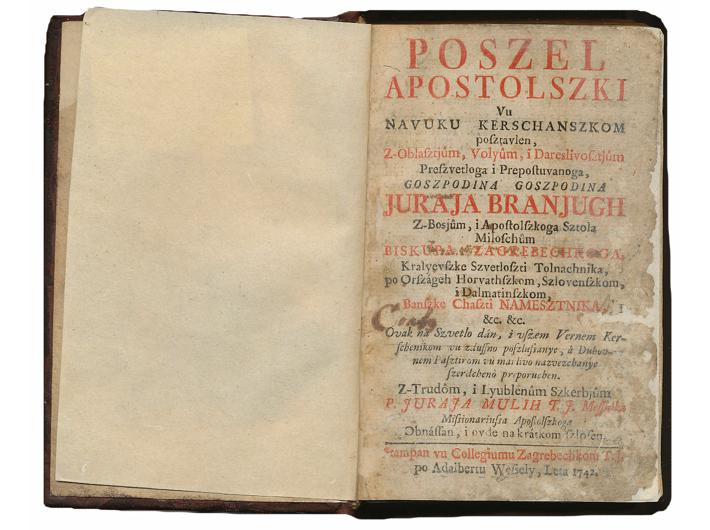 POSZEL
APOSTOLSZKI
Vu
NAVUKU KERSCHANSZKOM
posztavlen,
Z-Oblasztjûm, Volyûm, i Dareslivosztjûm
Preszvetloga i Prepostuvanoga,
GOSZPODINA GOSZPODINA
JURAJA BRANJUGH
Z-Bosjûm, i Apostolszkoga Sztola
Miloschûm
BISKUPA ZAGREBECHKOGA,
Kralyevszke Szvetloszti Tolnachnika,
po Országeh Horvathszkom, Szlovenszkom,
i Dalmatinszkom,
Banszke Chaszti NAMESZTNIKA,
&c. &c.
Ovak na Szvetlo dán, i vszem Vernem Ker-
schenikom vu zdussno poszlusianye, à Duhov-
nem Pasztirom vu marlivo nazvezchanye
szerdchenò preporuchen.
Z-Trudôm, i Lyublenûm Szkerbjûm
P. JURAJA MULIH T. J.
Missionariussa Apostolszkoga
Obnássan, i ovde na krátkom szlosen.
Stampan vu Collegiumu Zagrebechkom T. J.
po Adalbertu Wesely, Leta 1742.